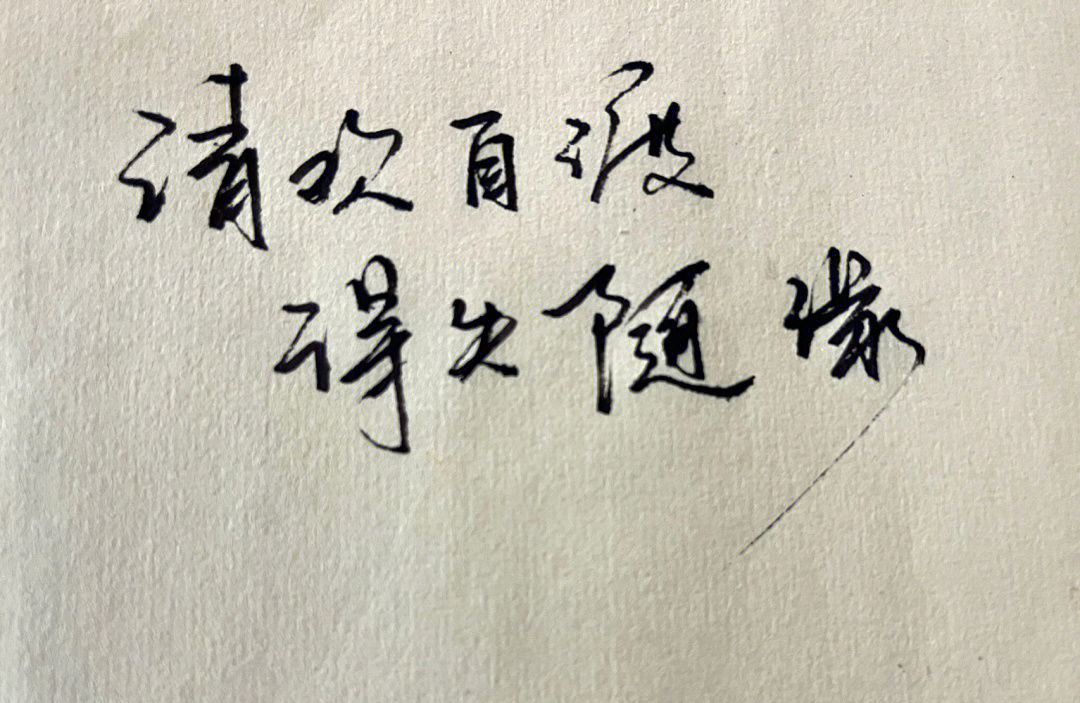 请欢自渡
得失随缘